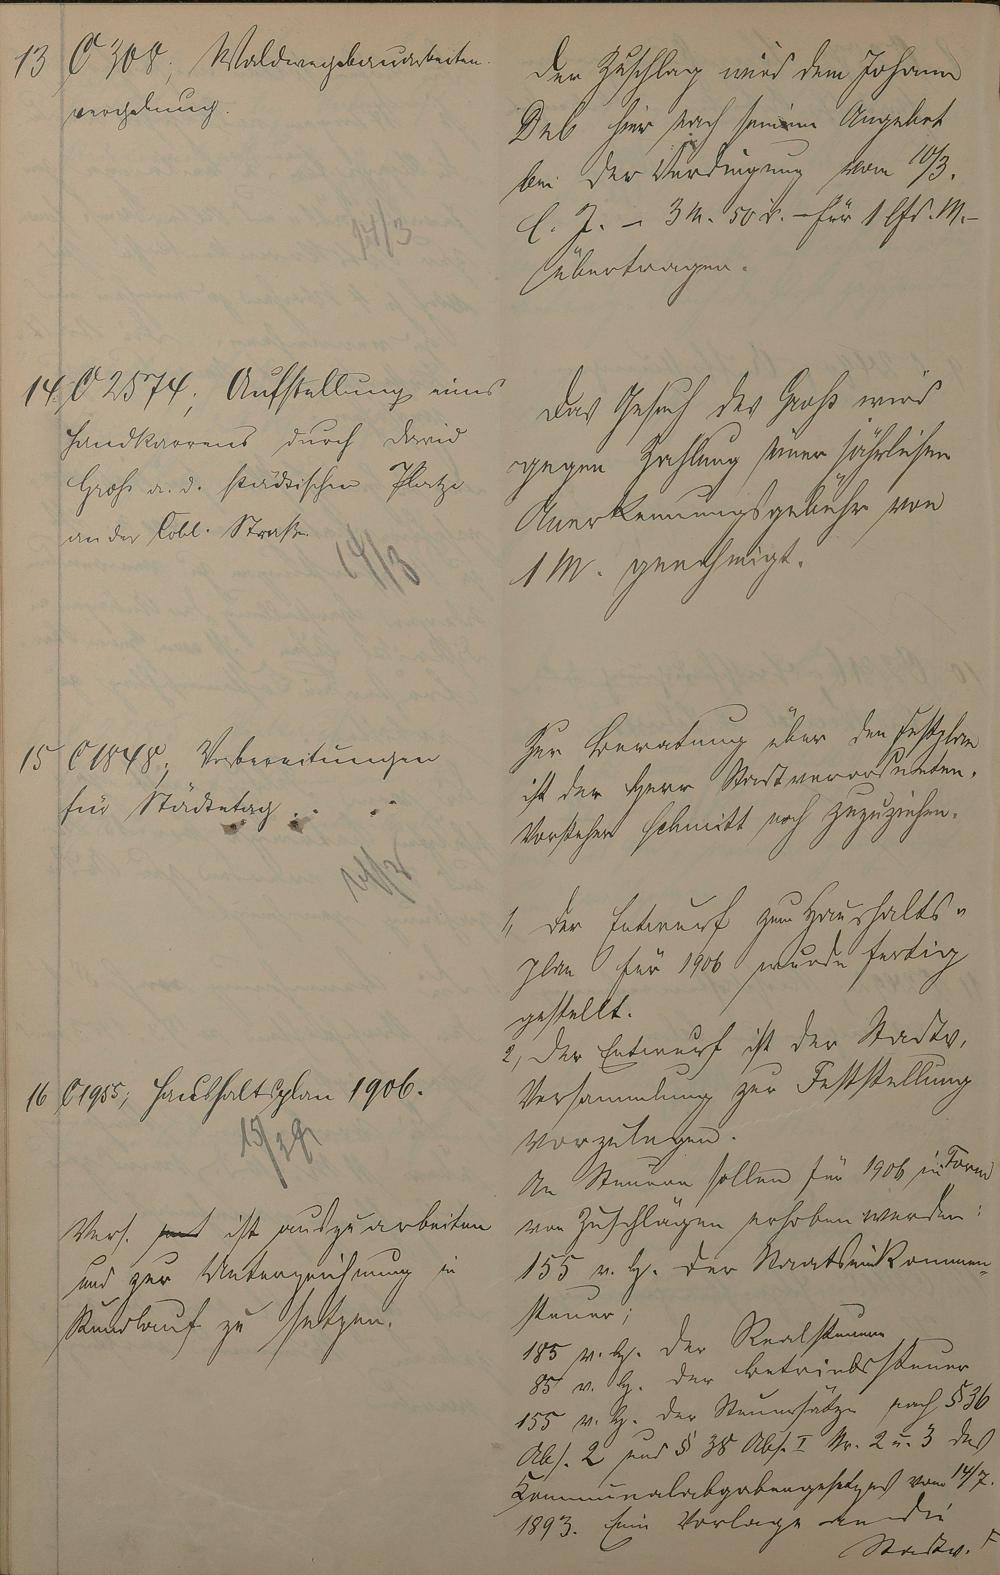 13 C 308; Waldwegebauarbeiten-
vergebung.
14/3
Der Zuschlag wird dem Johann
Deb hier nach seinem Angebot
bei der Verdingung vom 10/3.
l. J. – 3 M. 50 d. – für 1 lfd. M. –
übertragen.
14 C 2574; Aufstellung eines
Handkarrens durch David
Groß a. d. städtischen Platze
an der Cobl. Straße.
14/3
Das Gesuch des Groß wird
gegen Zahlung einer jährlichen
Anerkennungsgebühr von
1 M. genehmigt.
15 C 1848; Vorbereitungen
für Städtetag.
14/3
Zur Beratung über den Festplan
ist der Herr Stadtverordneten-
Vorsteher Schmitt noch zuzuziehen.
16 C 1955; Haushaltsplan 1906.
15/3
Vers. ist auszuarbeiten
und zur Unterzeichnung in
Rundlauf zu setzen.
1, Der Entwurf zum Haushalts-
plan für 1906 wurde fertig
gestellt.
2, Der Entwurf ist der Stadtv.
Versammlung zur Feststellung
vorzulegen.
An Steuern sollen für 1906 in Form
von Zuschlägen erhoben werden:
155 v. H. der Staatseinkommen-
steuer;
185 v. H. der Realsteuern
85 v. H. der Betriebssteuer
155 v. H. der Steuersätze nach § 36
Abs. 2 und § 38 Abs. I Nr. 2 u. 3 des
Kommunalabgabengesetzes vom 14/7.
1893. Eine Vorlage an die
Stadtv.